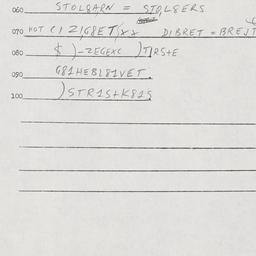 060 STOLGARN = STOLGERS
070 HOT C1Z1G8ET1XX D1BRET = BREJT
080 $)-ZEGEXC )T)RS+E
090 G81HEBL81VET.
100 )STR1S+K81S